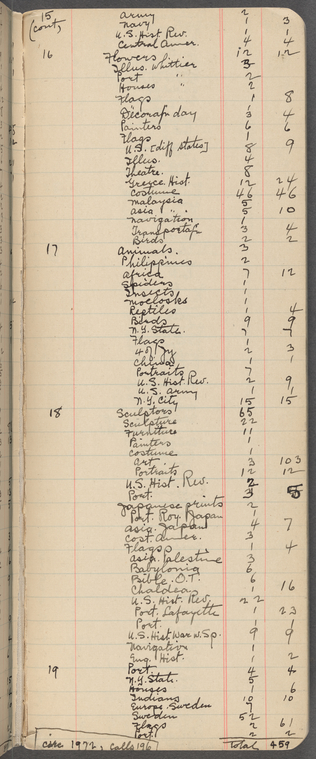 15 Army 2
(cont) Navy 1 3
U.S. Hist Rev. 1 1
Central Amer. 4 4
16 Flowers 12 12
Illus. Whittier 3
Port " 2
Houses " 2
Flags 1 8
Decorat'n day 3 4
Painters 6 6
Flags 1
U.S. [diff states] 8 9
Illus. 4
Theatre. 8
Greece Hist. 12 24
Costume 46 46
Malaysia 5
Asia " 5 10
Navigation 1
Transportat'n 3 4
Birds 2 2
17 Animals. 3
Philippines 2
Africa 7 12
Spiders 1
Insects 1
Mollosks 1
Reptiles 1 4
Birds 9 9
N.Y. State. 7 7
Flags 1
4 of Jy 2 3
China 1 1
Portraits 7
U.S. Hist Rev. 2 9
U.S. Army 1 1
N.Y. City 15 15
18 Sculptors 65
Sculpture 22
Furniture 11
Painters 1
Costume 1
Art 3 103
Portraits 12 12
U.S. Hist. Rev. 2
Port. 3 5
Japanese prints 2
Port. Roy. Japan 1
Asia. Japan 4 7
Cost. Amer. 3
Flags 1 4
Asia. Palestine 3
Babylonia 6
Bible. O.T. 6
Chaldean 1 16
U.S. Hist. Rev. 22
Port. Lafayette 1 23
Port. 1 1
U.S. Hist War w. Sp. 9 9
Navigation 1
Eng. Hist. 1 2
19 Port. 4 4
N.Y. State. 5
Houses 1 6
Indians 10 10
Europe. Sweden 7
Sweden 52
Flags 2 61
Port. 2 2
circ 1972, calls 196 Total 459